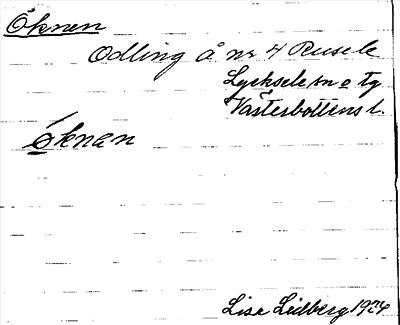 Öknen
Odling å nr 4 Rusele
Lycksele sn o tg
Västerbottens l.
öknan
Lisa Lidberg 1924